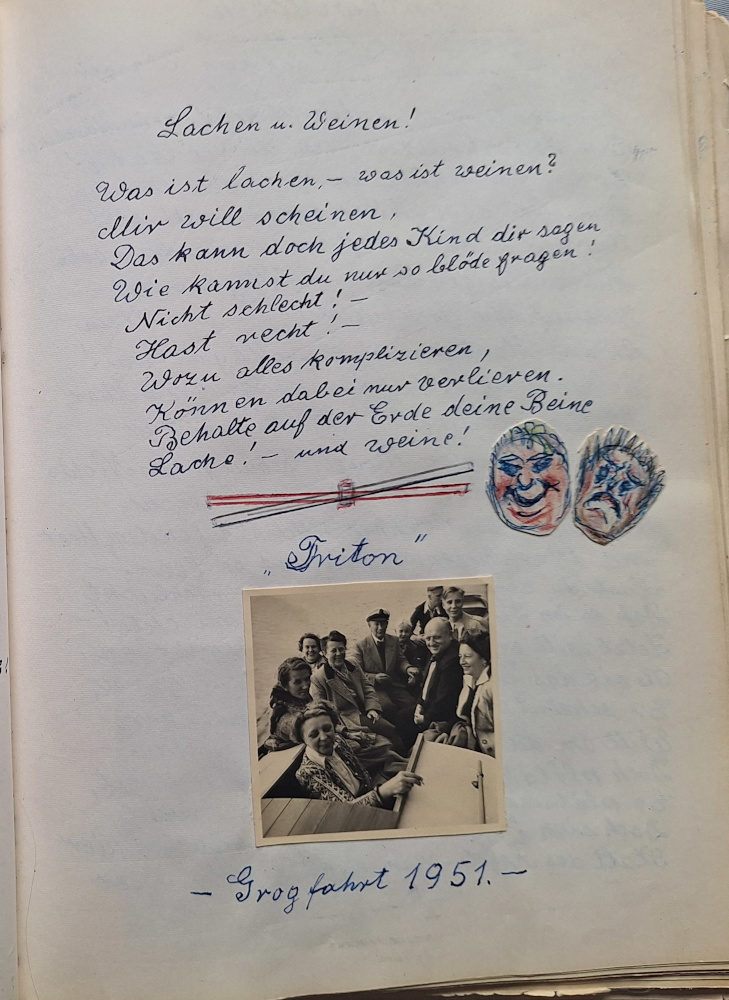 Lachen u. Weinen!
Was ist lachen, – was ist weinen?
Mir will scheinen,
Das kann doch jedes Kind dir sagen
Wie kannst du nur so blöde fragen!
Nicht schlecht! –
Hast recht! –
Wozu alles komplizieren,
Können dabei nur verlieren.
Behalte auf der Erde deine Beine
Lache! – und weine!
„Triton"
– Grogfahrt 1951. –